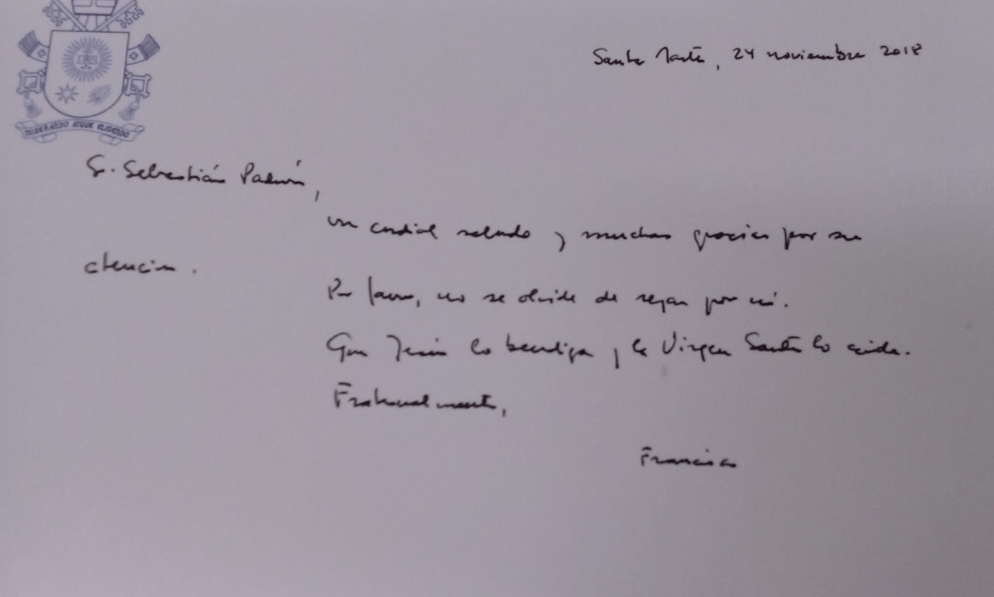 MISERANDO ATQUE ELIGENDO
Santa Marta, 24 noviembre 2018
Sr. Sebastián Padrón,
un cordial saludo y muchas gracias por su
atención.
Por favor, no se olvide de rezar por mí.
Que Jesús lo bendiga y la Virgen Santa lo cuide.
Fraternalmente,
Francisco